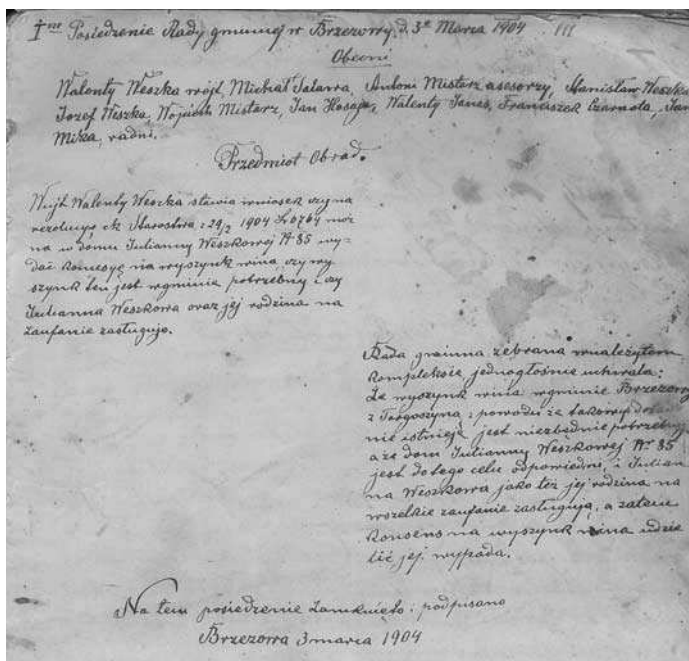 Posiedzenie Rady gminnej w Brzezowy d. 3go Marca 1904 III
Obecni
Walenty Weszka wójt, Michał Salawa, Antoni Mistarz asesorzy, Stanisław Weszka
Jozef Weszka, Wojciech Mistarz, Jan Walenty Janas, Franciszek Czarnota, Jan
Mika, radni.
Przedmiot Obrad.
Wujt Walenty Weszka stawia wniosek czy na
rezolucyę ck Starostwa z 29/2 1904 L 6764 moż
na w domu Julianny Weszkowej Nr 85 wy-
dać konsesyę na wyszynk wina, czy wy-
szynk ten jest wgminie potrzebny i czy
Julianna Weszkowa oraz jej rodzina na
zaufanie zasługuje.
Rada gminna zebrana wnależytem
komplekcie jednogłośnie uchwala:
Że wyszynk wina wgminie Brzezowej
z Targoszyną z powodu że takowy dotąd
nie istnieje jest niezbędnie potrzebny
a że dom Julianny Weszkowej Nr 85
jest do tego celu odpowiedni, i Julian
na Weszkowa jako też jej rodzina na
wszelkie zaufanie zasługują, a zatem
Konsens na wyszynk wina udzie
lić jej wypada.
Na tem posiedzenie zamknięto i podpisano
Brzezowa 3 marca 1904